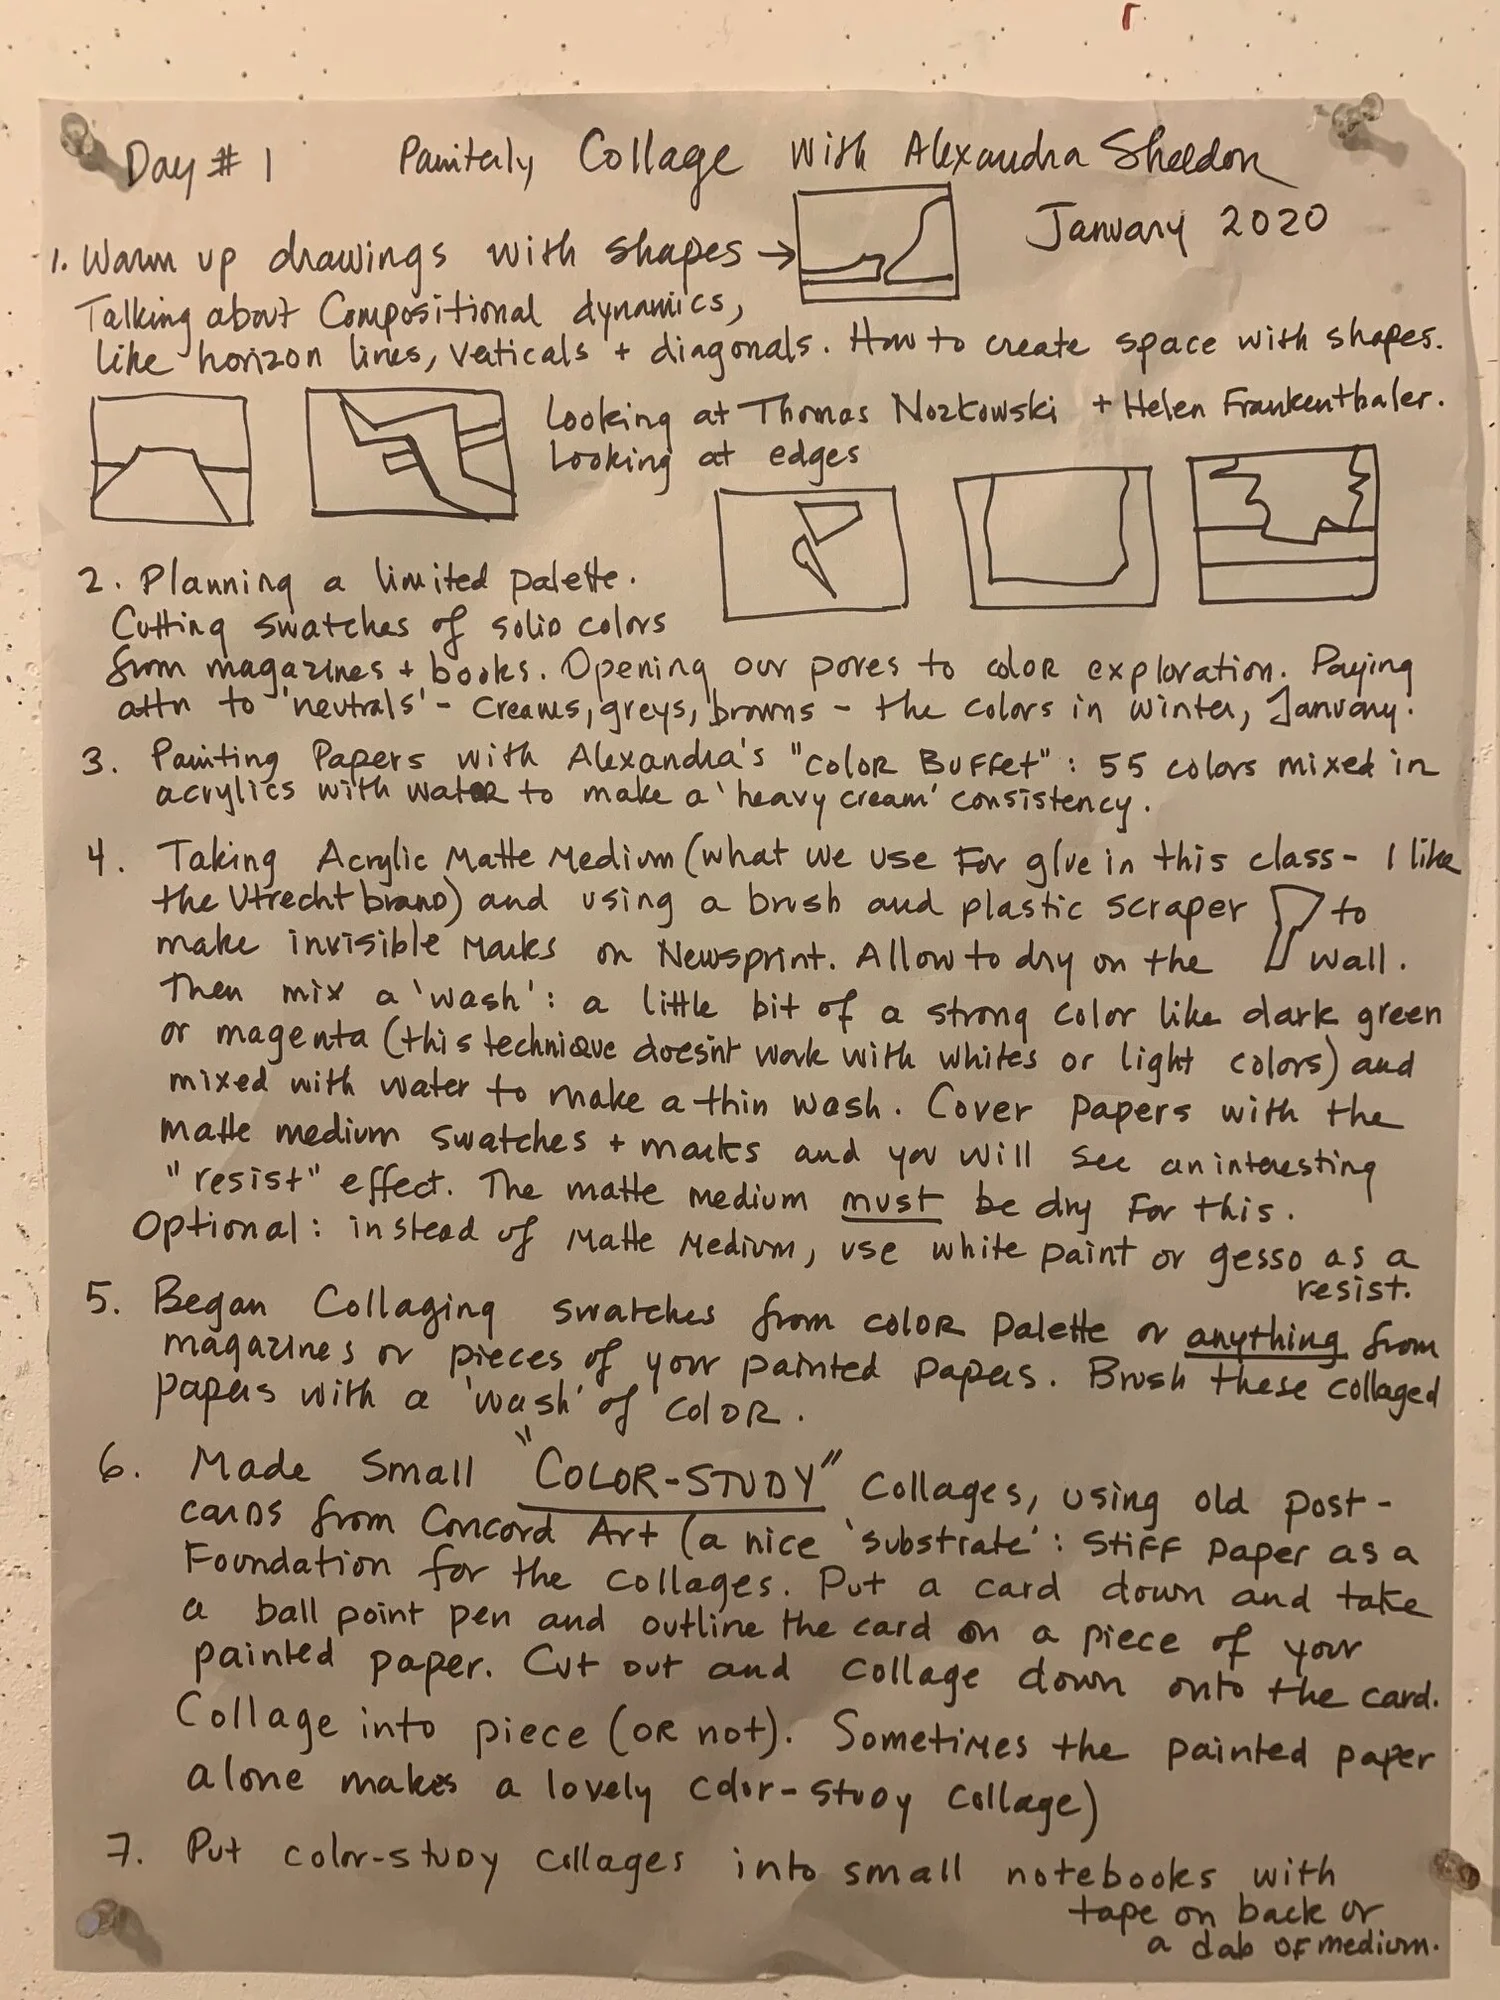 Day # 1 Painterly Collage with Alexandra Sheldon
January 2020
1. Warm up drawings with shapes →
Talking about Compositional dynamics,
like horizon lines, verticals + diagonals. How to create space with shapes.
Looking at Thomas Nozkowski + Helen Frankenthaler.
Looking at edges
2. Planning a limited palette.
Cutting swatches of solid colors
from magazines + books. Opening our pores to color exploration. Paying
attn to 'neutrals' - creams, greys, browns - the colors in winter, January.
3. Painting Papers with Alexandra's "Color Buffet": 55 colors mixed in
acrylics with water to make a 'heavy cream' consistency.
4. Taking Acrylic Matte Medium (what we use for glue in this class - I like
the Utrecht brand) and using a brush and plastic scraper to
make invisible marks on Newsprint. Allow to dry on the wall.
Then mix a 'wash': a little bit of a strong color like dark green
or magenta (this technique doesn't work with whites or light colors) and
mixed with water to make a thin wash. Cover papers with the
matte medium swatches + marks and you will see an interesting
"resist" effect. The matte medium must be dry for this.
Optional: instead of Matte Medium, use white paint or gesso as a
resist.
5. Began Collaging swatches from color palette or anything from
magazines or pieces of your painted papers. Brush these collaged
papers with a 'wash' of color.
6. Made Small "COLOR-STUDY" Collages, using old post-
cards from Concord Art (a nice 'substrate': stiff paper as a
Foundation for the collages. Put a card down and take
a ball point pen and outline the card on a piece of your
painted paper. Cut out and collage down onto the card.
Collage into piece (or not). Sometimes the painted paper
alone makes a lovely color-study collage)
7. Put color-study collages into small notebooks with
tape on back or
a dab of medium.